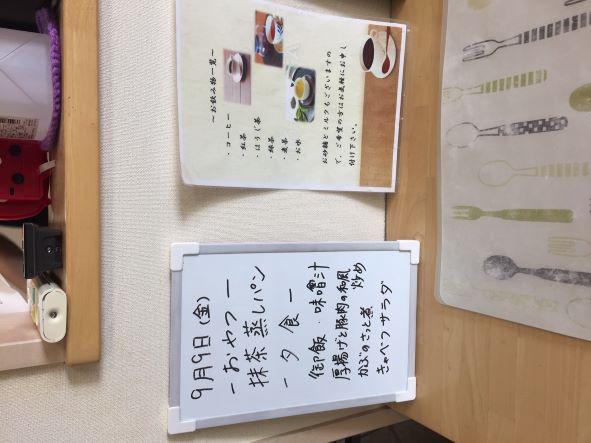 ～お飲み物一覧～
・コーヒー
・紅茶
・ほうじ茶
・緑茶
・麦茶
・お水
お砂糖とミルクもございますの
で、ご希望の方はお気軽にお申し
付け下さい。
9月9日(金)
ーおやつー
抹茶蒸しパン
ー夕食ー
御飯・味噌汁
厚揚げと豚肉の和風
炒め
かぶのさっと煮
キャベツサラダ